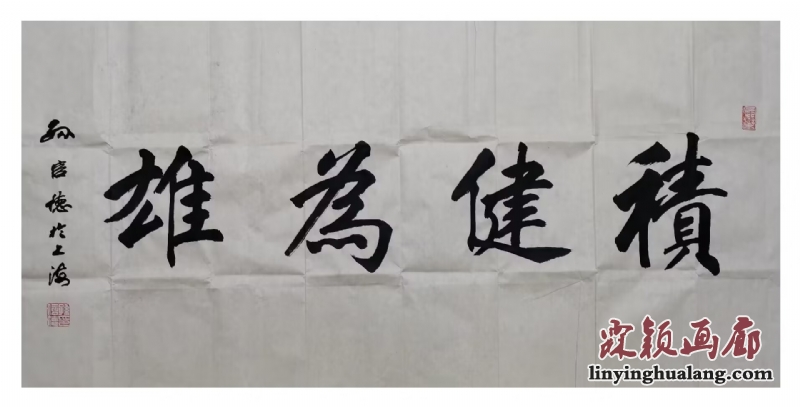 積健為雄
孙信德於上海
霖颖画廊
linyinghualang.com